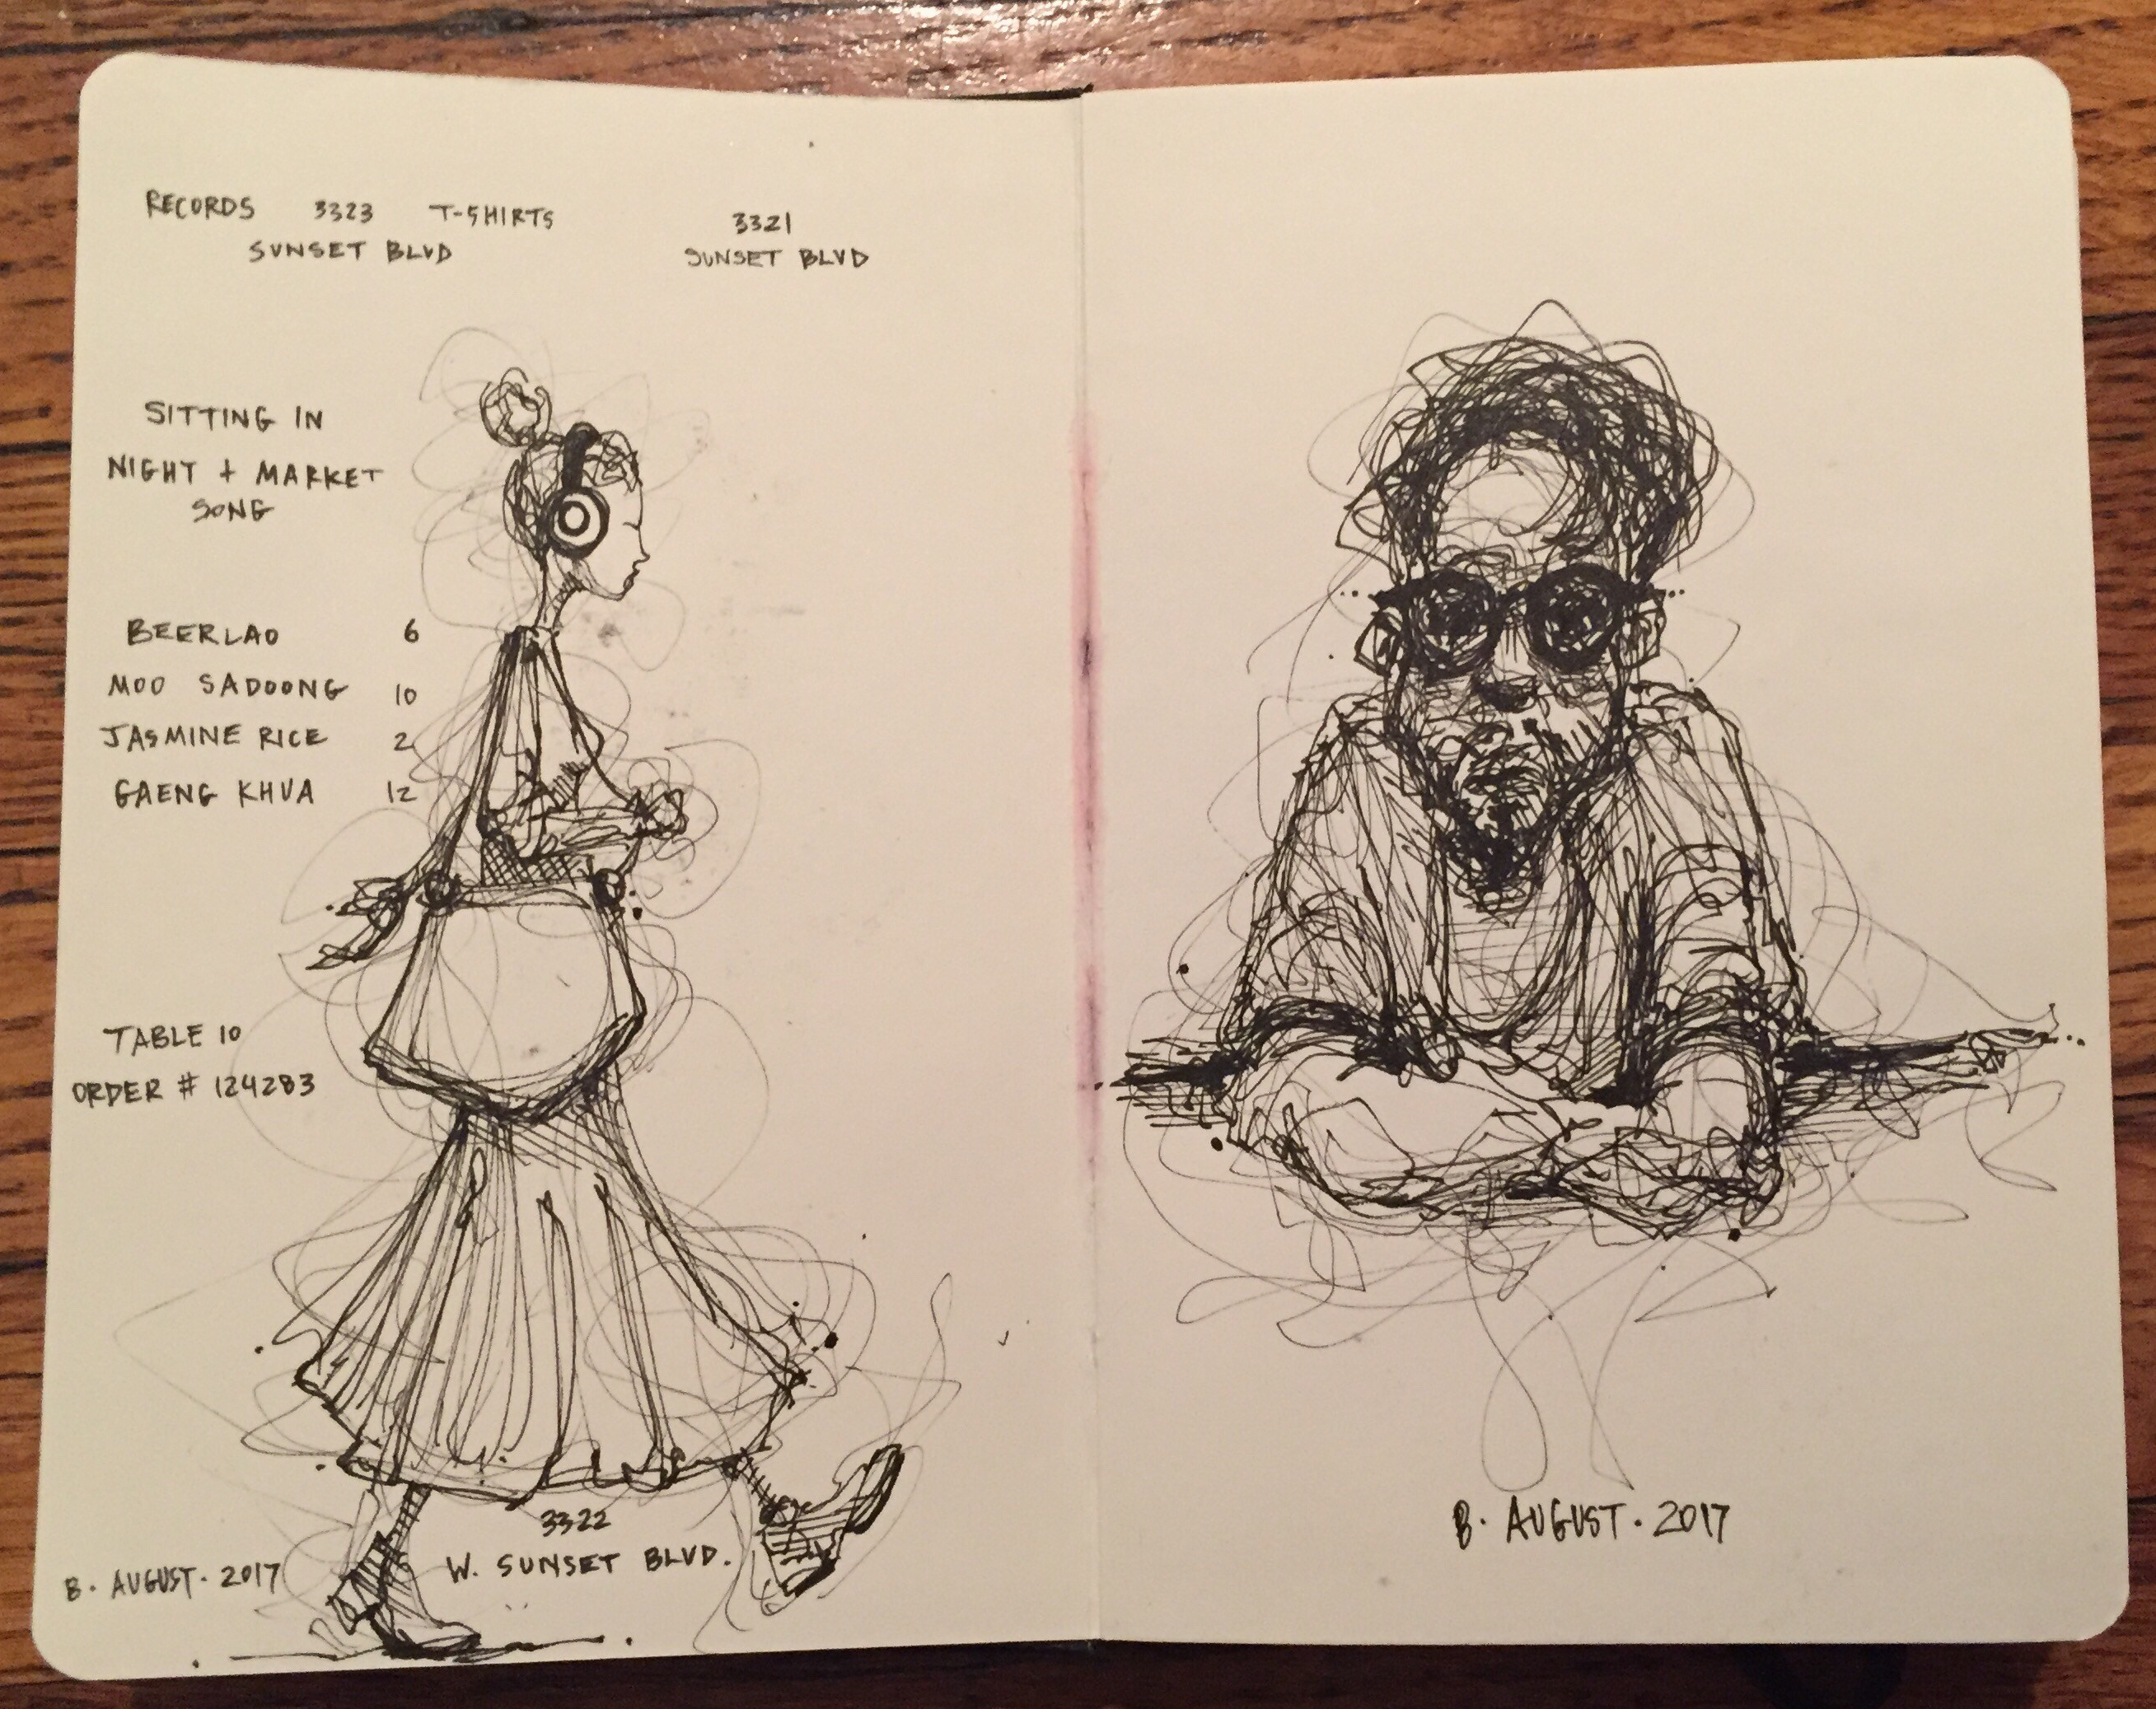 RECORDS 3323 T-SHIRTS
SUNSET BLVD
3321
SUNSET BLVD
SITTING IN
NIGHT + MARKET
SONG
BEERLAO 6
MOO SADOONG 10
JASMINE RICE 2
GAENG KHUA 12
TABLE 10
ORDER # 124283
3322
W. SUNSET BLVD.
B. AUGUST. 2017
B. AUGUST. 2017